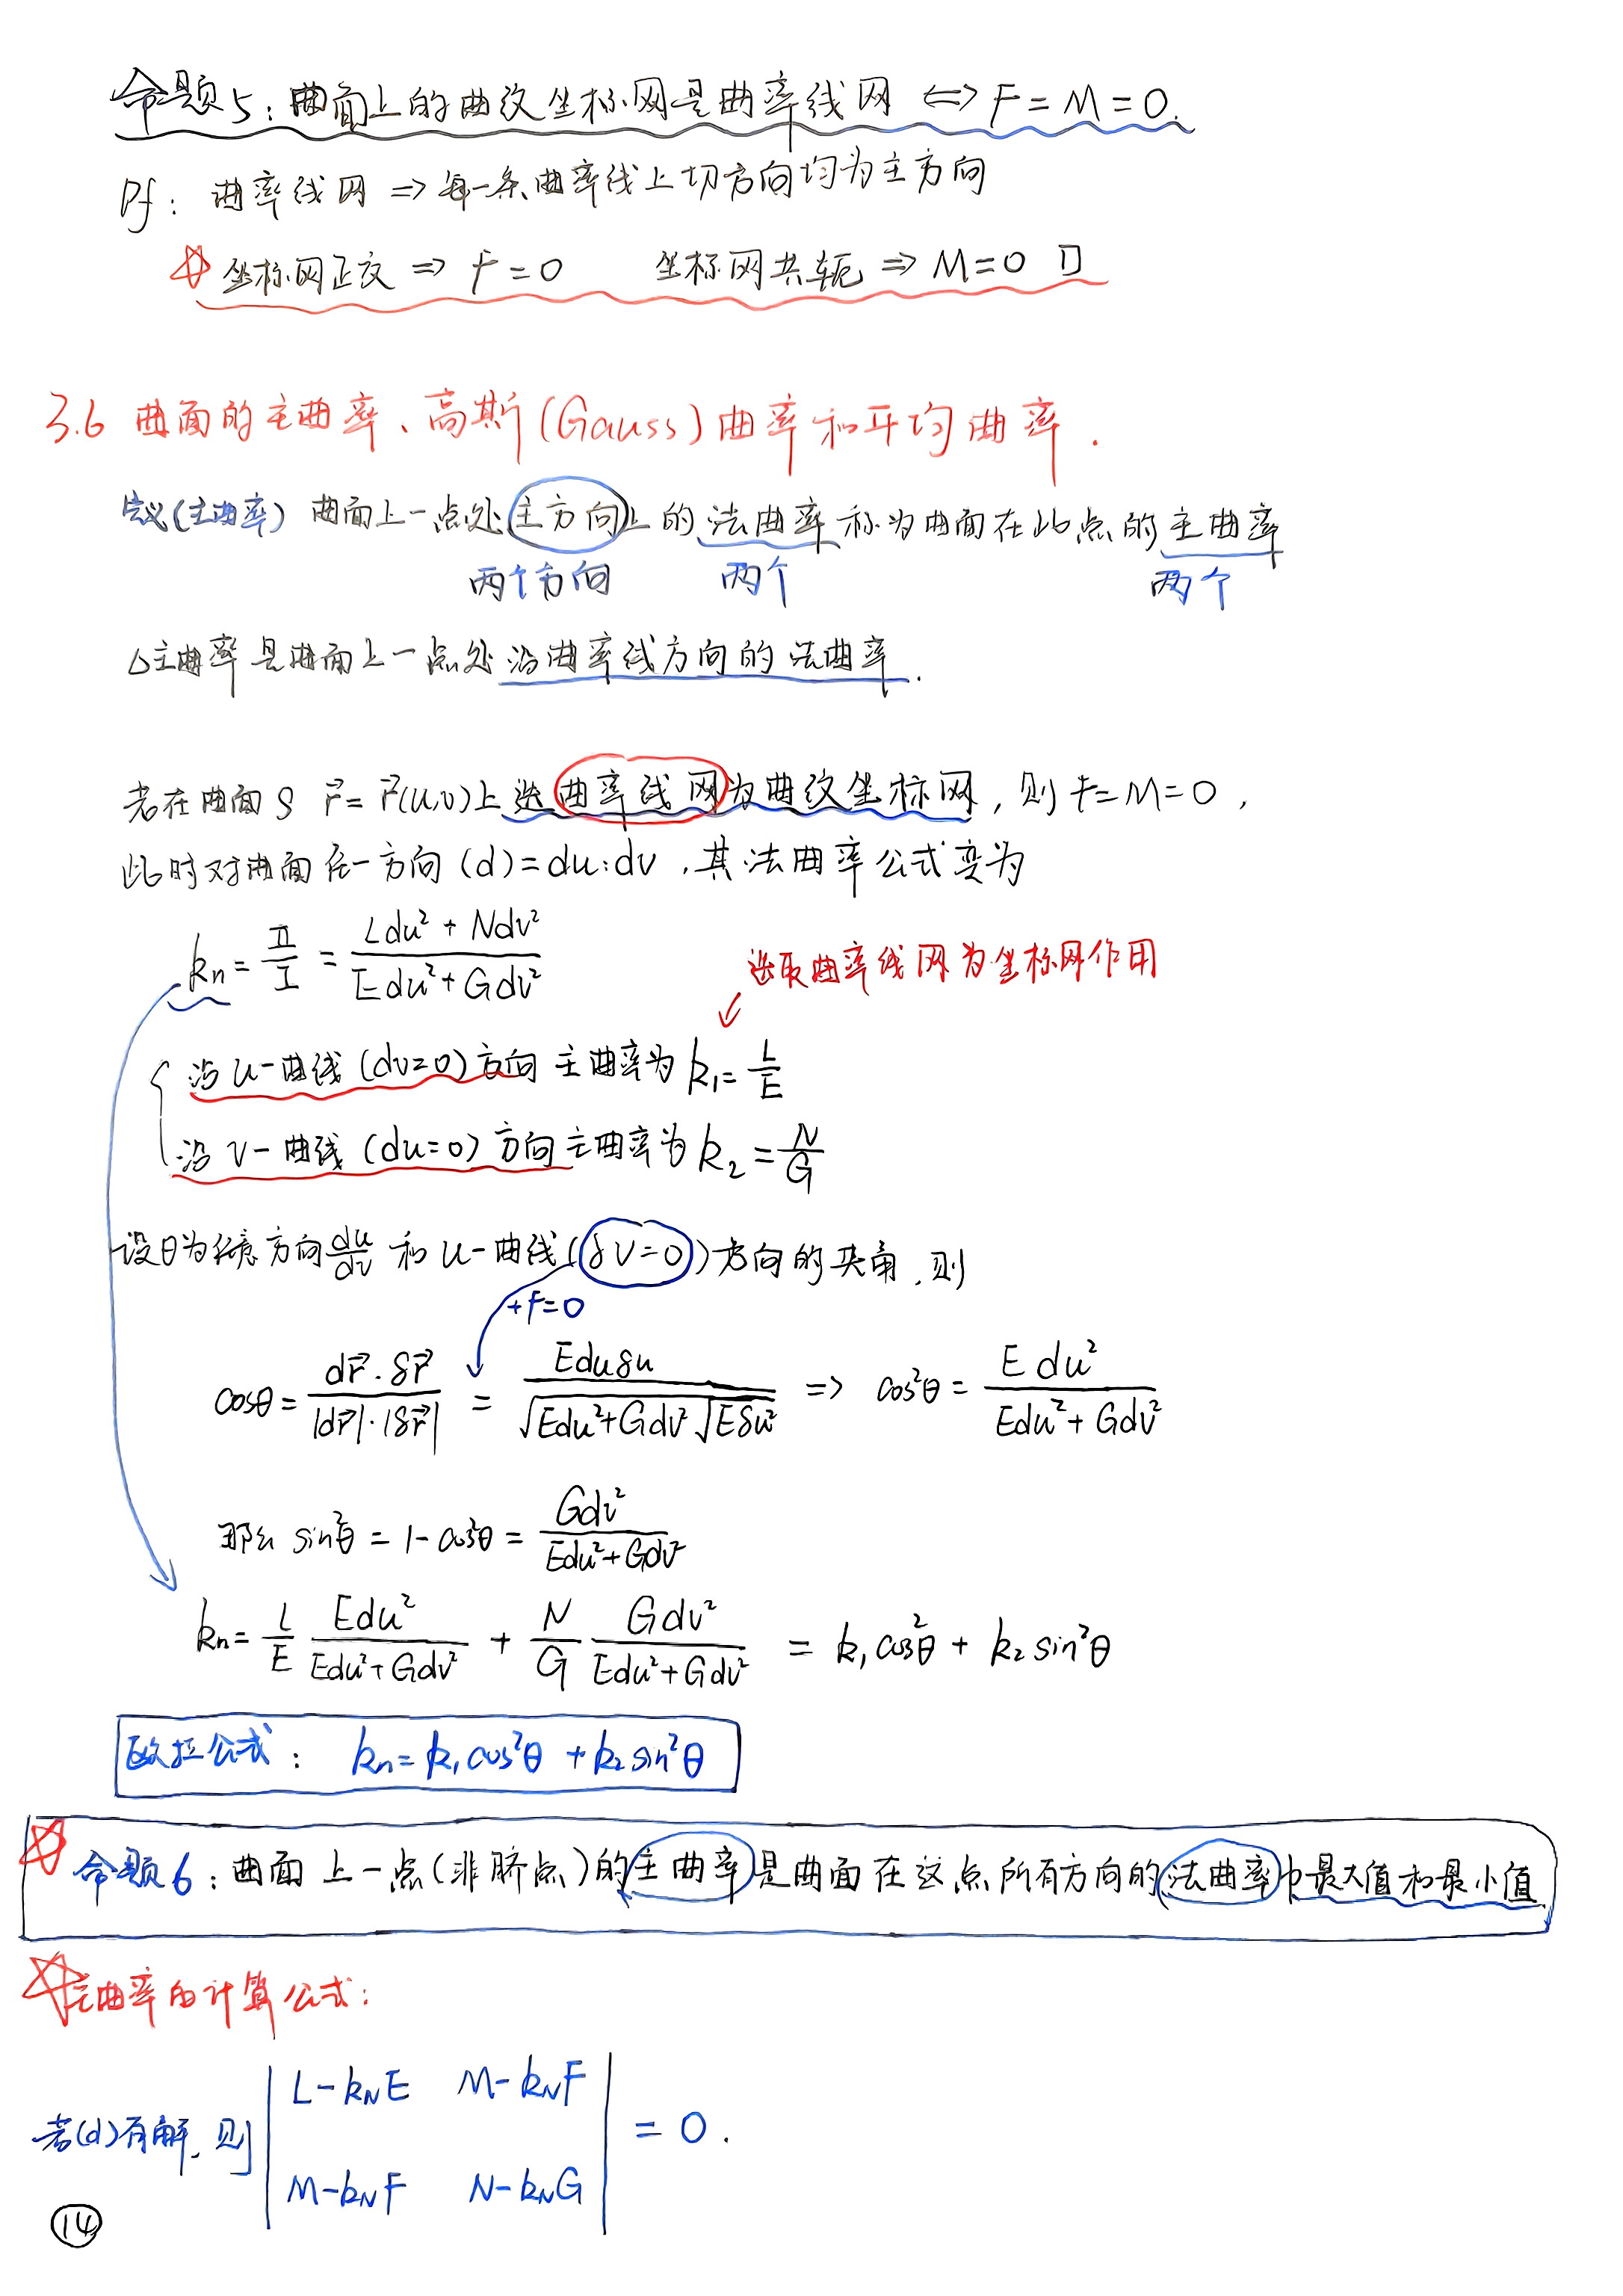 命题5：曲面上的曲纹坐标网是曲率线网 ⟺ F=M=0.
Pf：曲率线网 ⇒ 每一条曲率线上切方向均为主方向
☆ 坐标网正交 ⇒ F=0 坐标网共轭 ⇒ M=0 □
3.6 曲面的主曲率、高斯(Gauss)曲率和平均曲率.
定义(主曲率) 曲面上一点处主方向上的法曲率称为曲面在此点的主曲率
两个方向 两个 两个
△主曲率是曲面上一点处沿曲率线方向的法曲率.
若在曲面S r⃗=r⃗(u,v)上选曲率线网为曲纹坐标网，则F=M=0，
此时对曲面任一方向(d)=du:dv，其法曲率公式变为
kₙ = Ⅱ/Ⅰ = (Ldu²+Ndv²)/(Edu²+Gdv²)
选取曲率线网为坐标网作用
沿u-曲线(dv=0)方向主曲率为k₁=L/E
沿v-曲线(du=0)方向主曲率为k₂=N/G
设θ为任意方向du/dv和u-曲线(δv=0)方向的夹角，则
+F=0
cosθ = (dr⃗·δr⃗)/(|dr⃗|·|δr⃗|) = (Eduδu)/(√(Edu²+Gdv²) √(Eδu²)) ⇒ cos²θ = (Edu²)/(Edu²+Gdv²)
那么 sin²θ = 1-cos²θ = (Gdv²)/(Edu²+Gdv²)
kₙ = L/E (Edu²)/(Edu²+Gdv²) + N/G (Gdv²)/(Edu²+Gdv²) = k₁cos²θ + k₂sin²θ
欧拉公式： kₙ=k₁cos²θ+k₂sin²θ
☆ 命题6：曲面上一点(非脐点)的主曲率是曲面在这点所有方向的法曲率中最大值和最小值
☆主曲率的计算公式：
若(d)有解，则 | L-k_N E M-k_N F |
| M-k_N F N-k_N G | = 0.
⑭